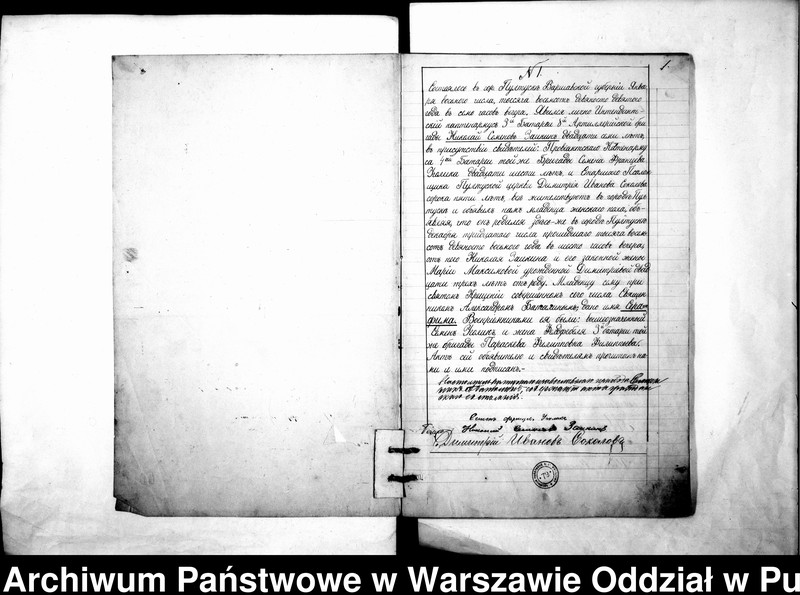 1.
N 1.
Состоялось въ гор. Пултускѣ Варшавской губерніи Янва-
ря восьмого числа, тысяча восемьсотъ девяносто девятого
года въ семь часовъ вечера. Явился лично Интендант-
скій каптенармусъ 3й Батареи 8й Артиллерійской бри-
гады Николай Семеновъ Заикинъ двадцати семи лѣтъ,
въ присутствіи свидѣтелей: Провіантскаго Каптенарму-
са 4ой Батареи той же Бригады Семена Францева
двадцати шести лѣтъ и Старшаго Псалом-
щика Пултуской церкви Димитрія Иванова Соколова
сорока пяти лѣтъ, всѣ жительствуютъ въ городѣ Пул-
тускѣ и объявилъ намъ младенца женскаго пола, объ-
являя, что онъ родился здѣсь-же въ городѣ Пултускѣ
Декабря тридцатаго числа прошедшаго тысяча восемь-
сотъ девяносто восьмого года въ шесть часовъ вечера,
отъ него Николая Заикина и его законной жены
Маріи Максимовой урожденной Димитріевой двад-
цати трехъ лѣтъ отъ роду. Младенцу сему при
святомъ Крещеніи совершенномъ сего числа Священ-
никомъ Александромъ дано имя Сера-
фима. Воспріемниками ея были: вышеозначенный
Семенъ и жена Фельдфебеля 3й батареи той
же бригады Параскева Филипповна Филиппова.
Актъ сей объявителю и свидѣтелямъ прочитанъ на-
ми и ими подписанъ.-
Семенъ
Николай Семеновъ Заикинъ
Димитрій Ивановъ Соколовъ
Archiwum Państwowe w Warszawie Oddział w Pu